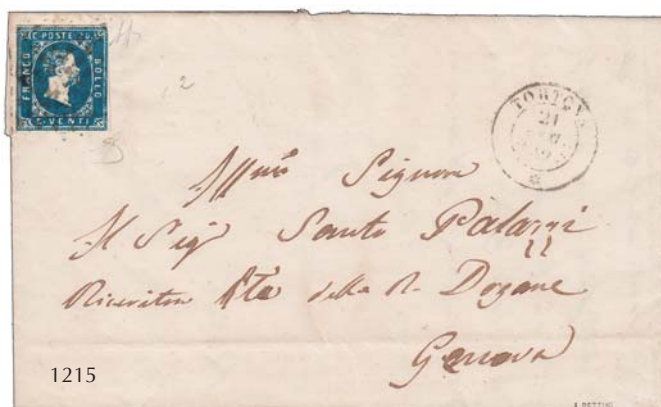 C. POSTE 20.
FRANCO
BOLLO
C. VENTI
2
TORTONA
21
Signore
Il Sigr Santo Palazzi
Ricevitore della R. Dogane
Genova
1215